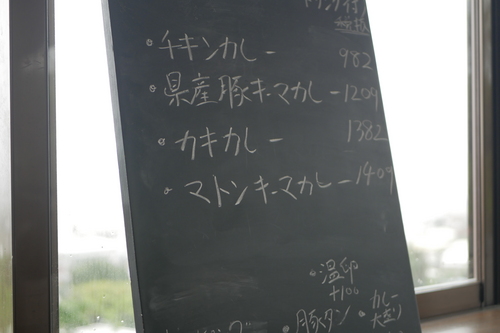 ドリンク付
・チキンカレー 982
・県産豚キーマカレー 1209
・カキカレー 1382
・マトンキーマカレー 1409
・温卵
+100
・豚タン ・カレー
大盛り